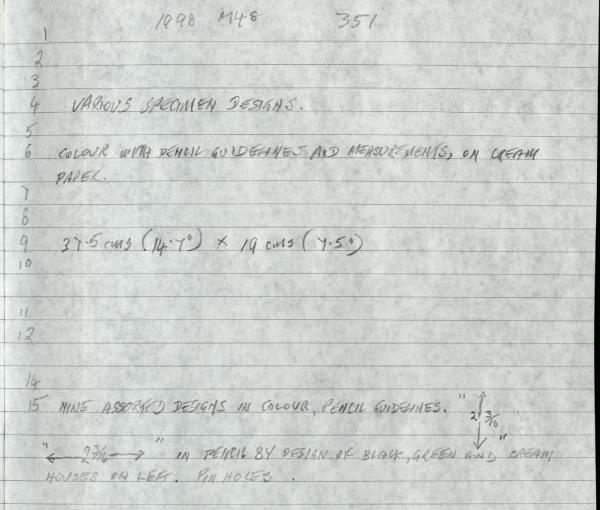 1998 M48 351
1
2
3
4 VARIOUS SPECIMEN DESIGNS.
5
6 COLOUR WITH PENCIL GUIDELINES AND MEASUREMENTS, ON CREAM
PAPER.
7
8
9 37.5 cms (14.7") × 19 cms (7.5")
10
11
12
14
15 NINE ASSORTED DESIGNS IN COLOUR, PENCIL GUIDELINES. " 2 3/16
" ← 2 3/16 → " IN PENCIL BY DESIGN OF BLACK, GREEN AND " CREAM
HOUSES ON LEFT. PIN HOLES.